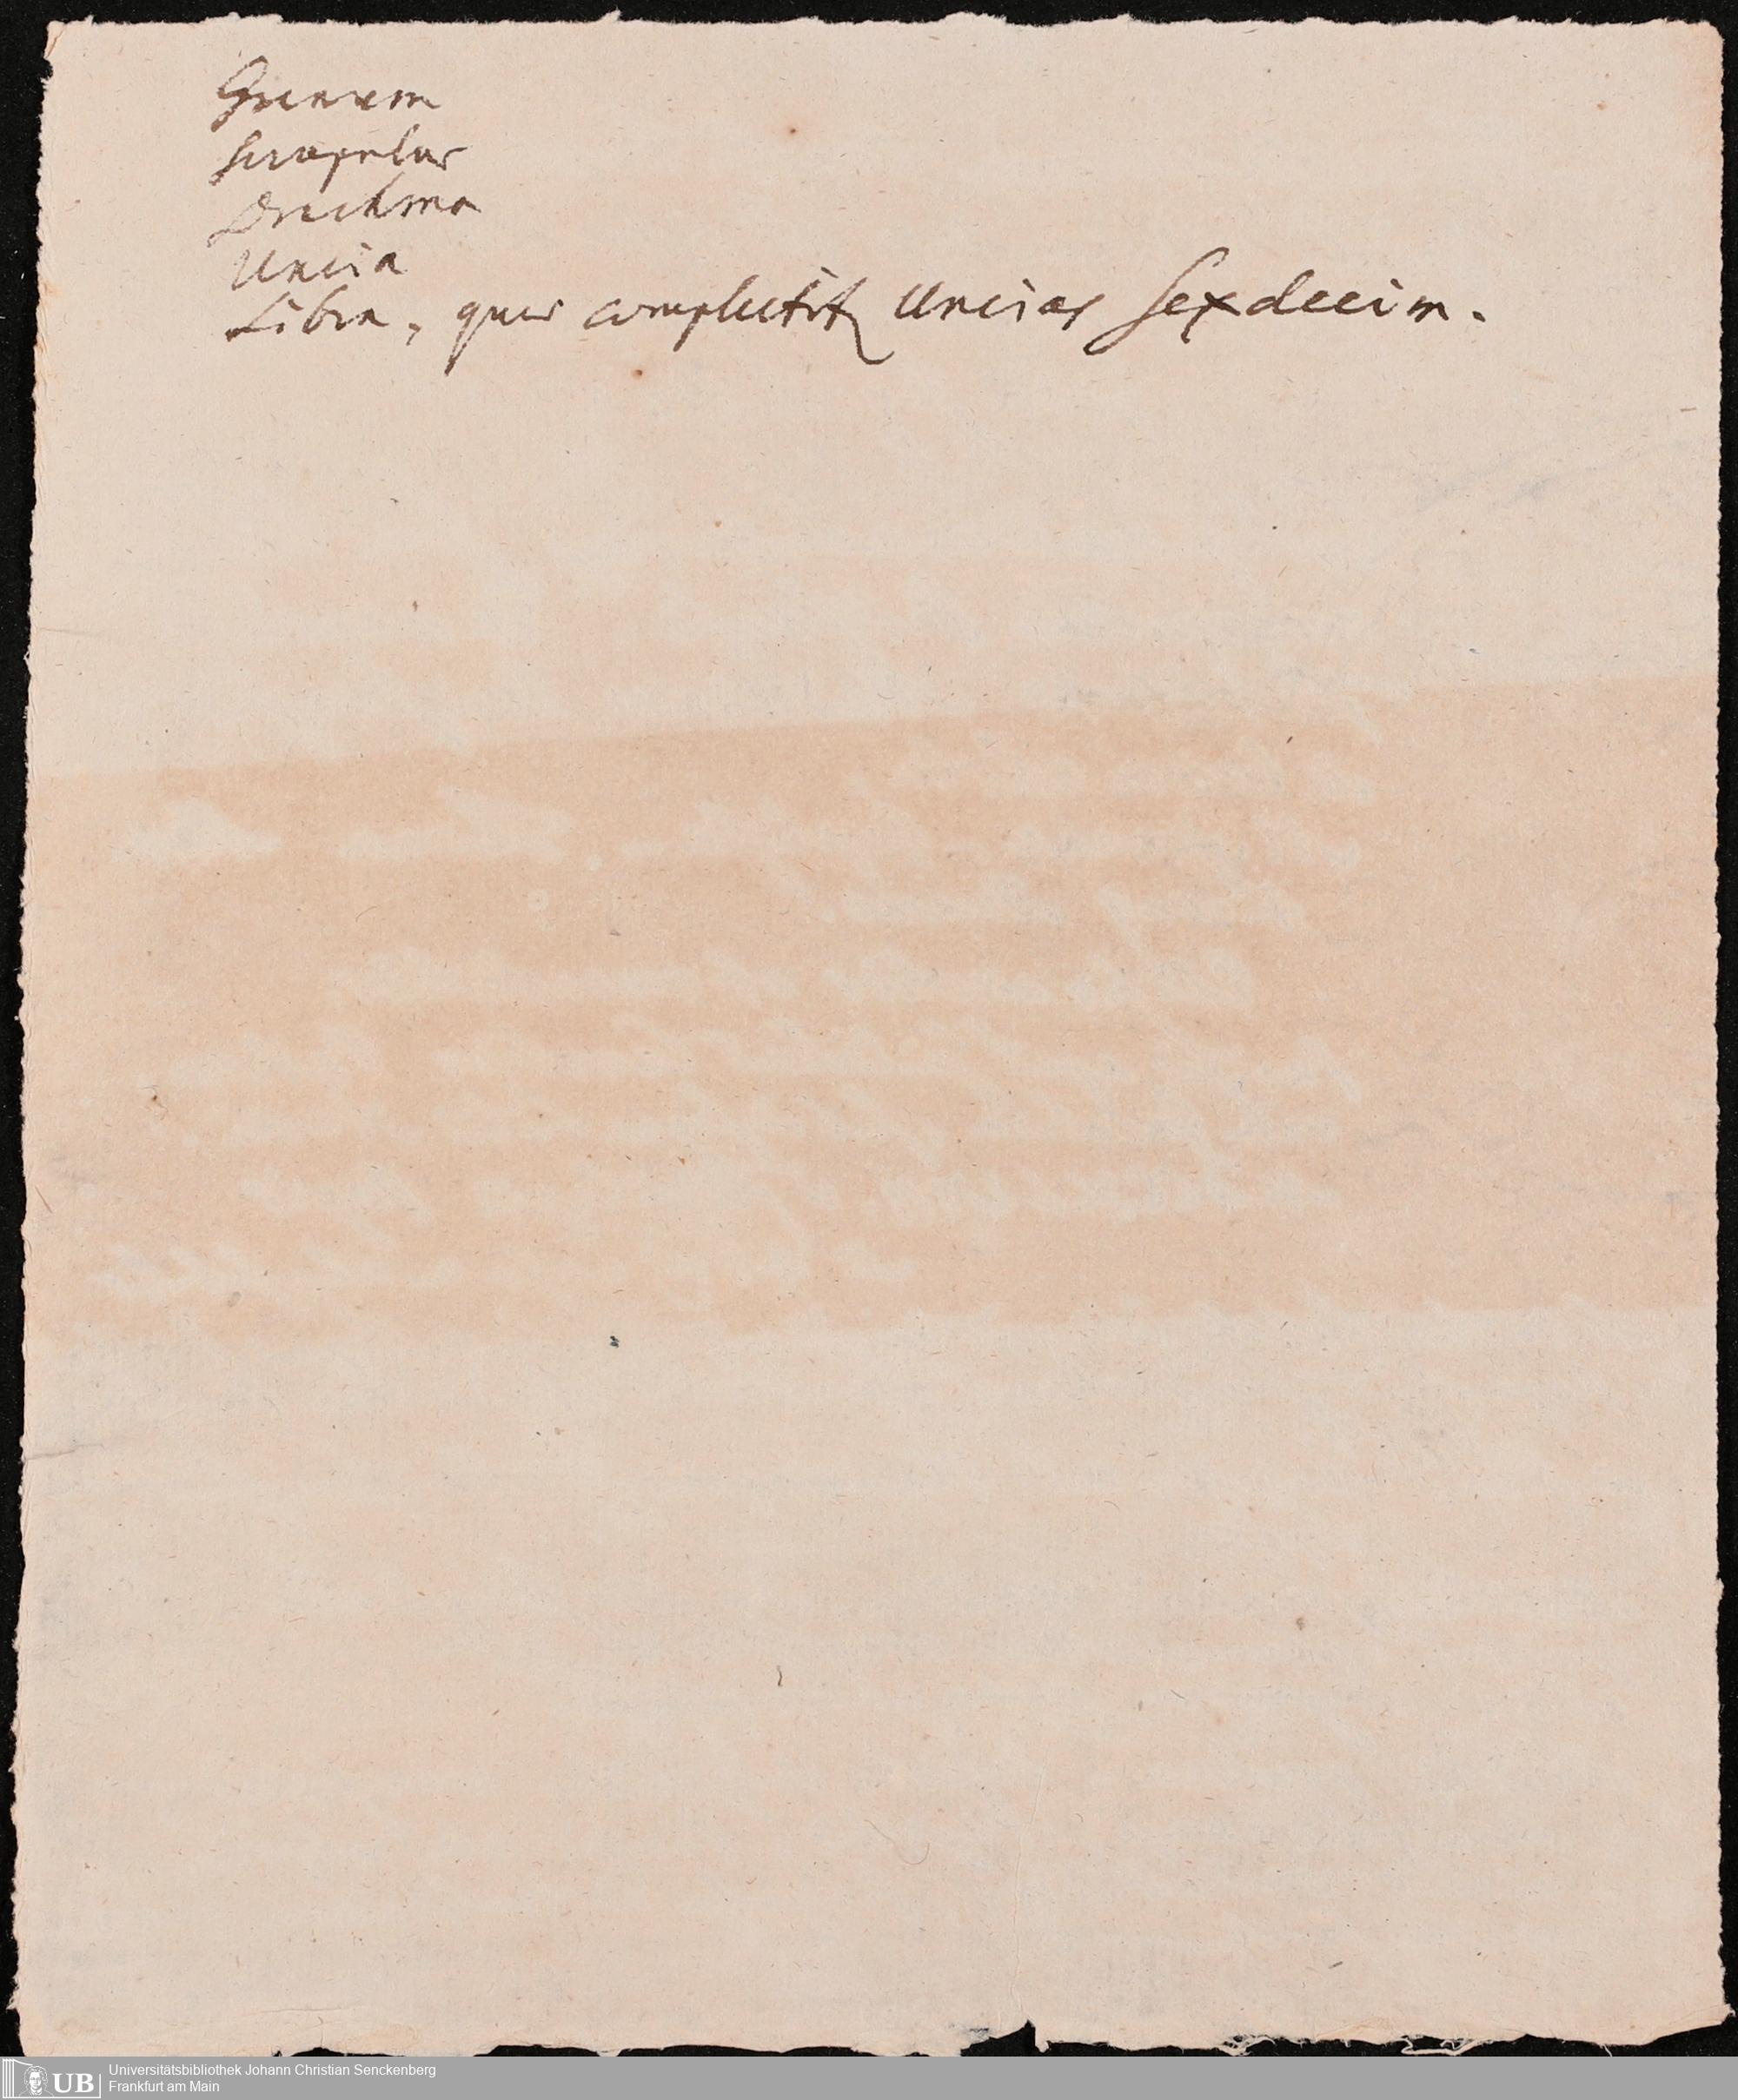 Granum
Scrupulus
Drachma
Uncia
Libra, quae complectit Uncias Sexdecim.
UB Universitätsbibliothek Johann Christian Senckenberg
Frankfurt am Main